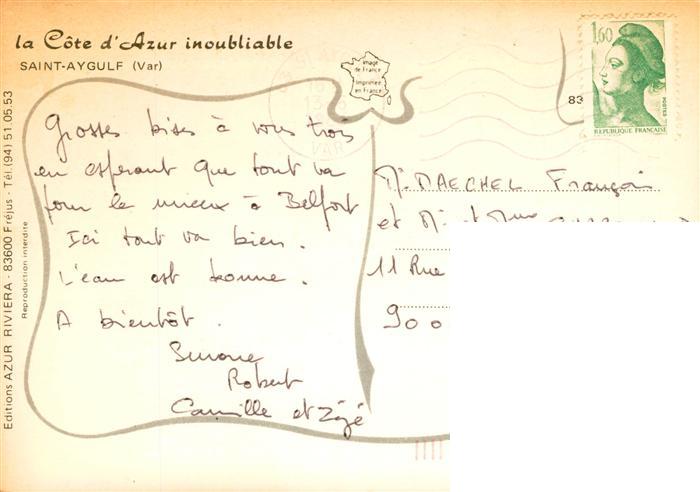 la Côte d'Azur inoubliable
SAINT-AYGULF (Var)
Image
de France
Imprimée
en France
83
1,60
POSTES
REPUBLIQUE FRANÇAISE
Grosses bises à vous trois
en espérant que tout va
pour le mieux à Belfort
Ici tout va bien.
L'eau est bonne.
A bientôt.
Simone
Robert
Camille et Zézé
M. MAECHEL François
et M. et Mme
11 Rue
900
Editions AZUR RIVIERA - 83600 Fréjus - Tél. (94) 51.05.53
Reproduction interdite